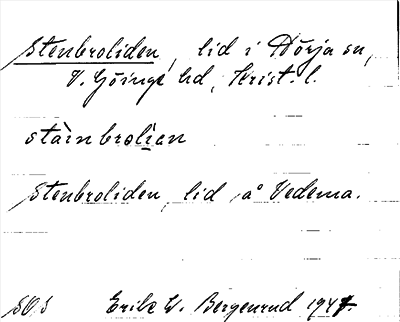 Stenbroliden, lid i Hörja sn,
V. Göinge hd, Krist. l.
stàinbrolien
Stenbroliden, lid å Vedema.
SOS Erik W. Bergenrud 1947.